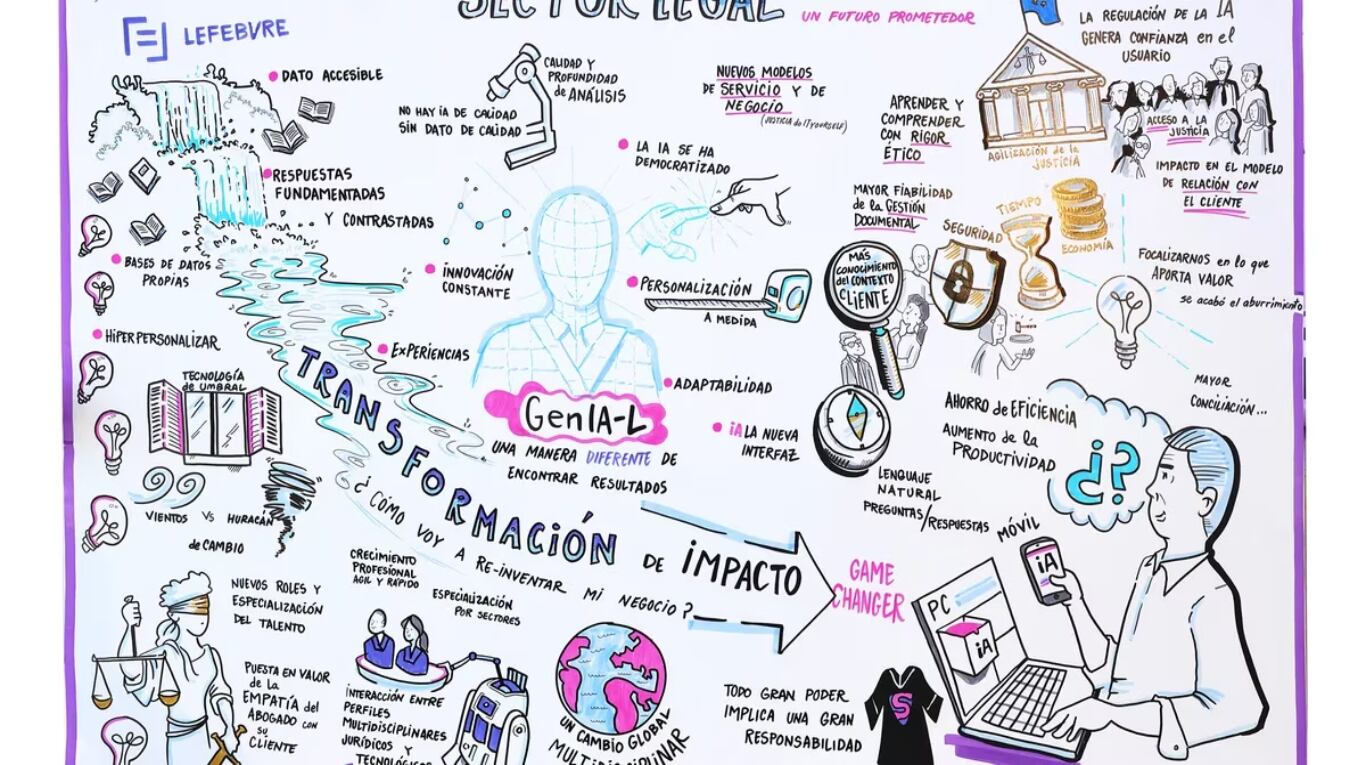 SECTOR LEGAL
UN FUTURO PROMETEDOR
LEFEBVRE
DATO ACCESIBLE
NO HAY IA DE CALIDAD
SIN DATO DE CALIDAD
CALIDAD Y
PROFUNDIDAD
de ANÁLISIS
NUEVOS MODELOS
DE SERVICIO Y DE
NEGOCIO
(JUSTICIA do IT YOURSELF)
APRENDER Y
COMPRENDER
CON RIGOR
ÉTICO
LA REGULACIÓN DE LA IA
GENERA CONFIANZA en el
USUARIO
AGILIZACIÓN de la
JUSTICIA
ACCESO A LA
JUSTICIA
IMPACTO EN EL MODELO
DE RELACIÓN CON
EL CLIENTE
RESPUESTAS
FUNDAMENTADAS
Y CONTRASTADAS
LA IA SE HA
DEMOCRATIZADO
BASES DE DATOS
PROPIAS
INNOVACIÓN
CONSTANTE
PERSONALIZACIÓN
A MEDIDA
MAYOR FIABILIDAD
de la GESTIÓN
DOCUMENTAL
MÁS
CONOCIMIENTO
del CONTEXTO
CLIENTE
SEGURIDAD
TIEMPO
ECONOMÍA
FOCALIZARNOS en lo que
APORTA VALOR
se acabó el aburrimiento
MAYOR
CONCILIACIÓN...
HIPERPERSONALIZAR
EXPERIENCIAS
ADAPTABILIDAD
TECNOLOGÍA
de UMBRAL
GenIA-L
UNA MANERA DIFERENTE DE
ENCONTRAR RESULTADOS
iA LA NUEVA
INTERFAZ
LENGUAJE
NATURAL
PREGUNTAS/RESPUESTAS
AHORRO de EFICIENCIA
AUMENTO de la
PRODUCTIVIDAD
¿?
VIENTOS VS HURACÁN
de CAMBIO
TRANSFORMACIÓN DE IMPACTO
¿CÓMO VOY A RE-INVENTAR MI NEGOCIO?
GAME
CHANGER
MÓVIL
iA
PC
iA
NUEVOS ROLES Y
ESPECIALIZACIÓN
DEL TALENTO
PUESTA EN VALOR
de la
EMPATÍA del
ABOGADO CON
SU
CLIENTE
CRECIMIENTO
PROFESIONAL
AGIL Y RÁPIDO
ESPECIALIZACIÓN
POR SECTORES
INTERACCIÓN ENTRE
PERFILES
MULTIDISCIPLINARES
JURÍDICOS Y
TECNOLÓGICOS
UN CAMBIO GLOBAL
MULTIDISCIPLINAR
TODO GRAN PODER
IMPLICA UNA GRAN
RESPONSABILIDAD
S